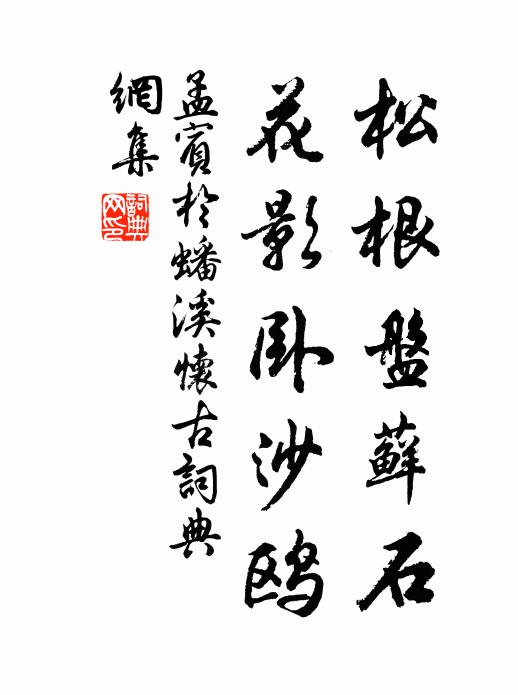 松根盤蘚石
花影卧沙鸥
孟賓於蟠溪懷古詞典
網集
詞典网印